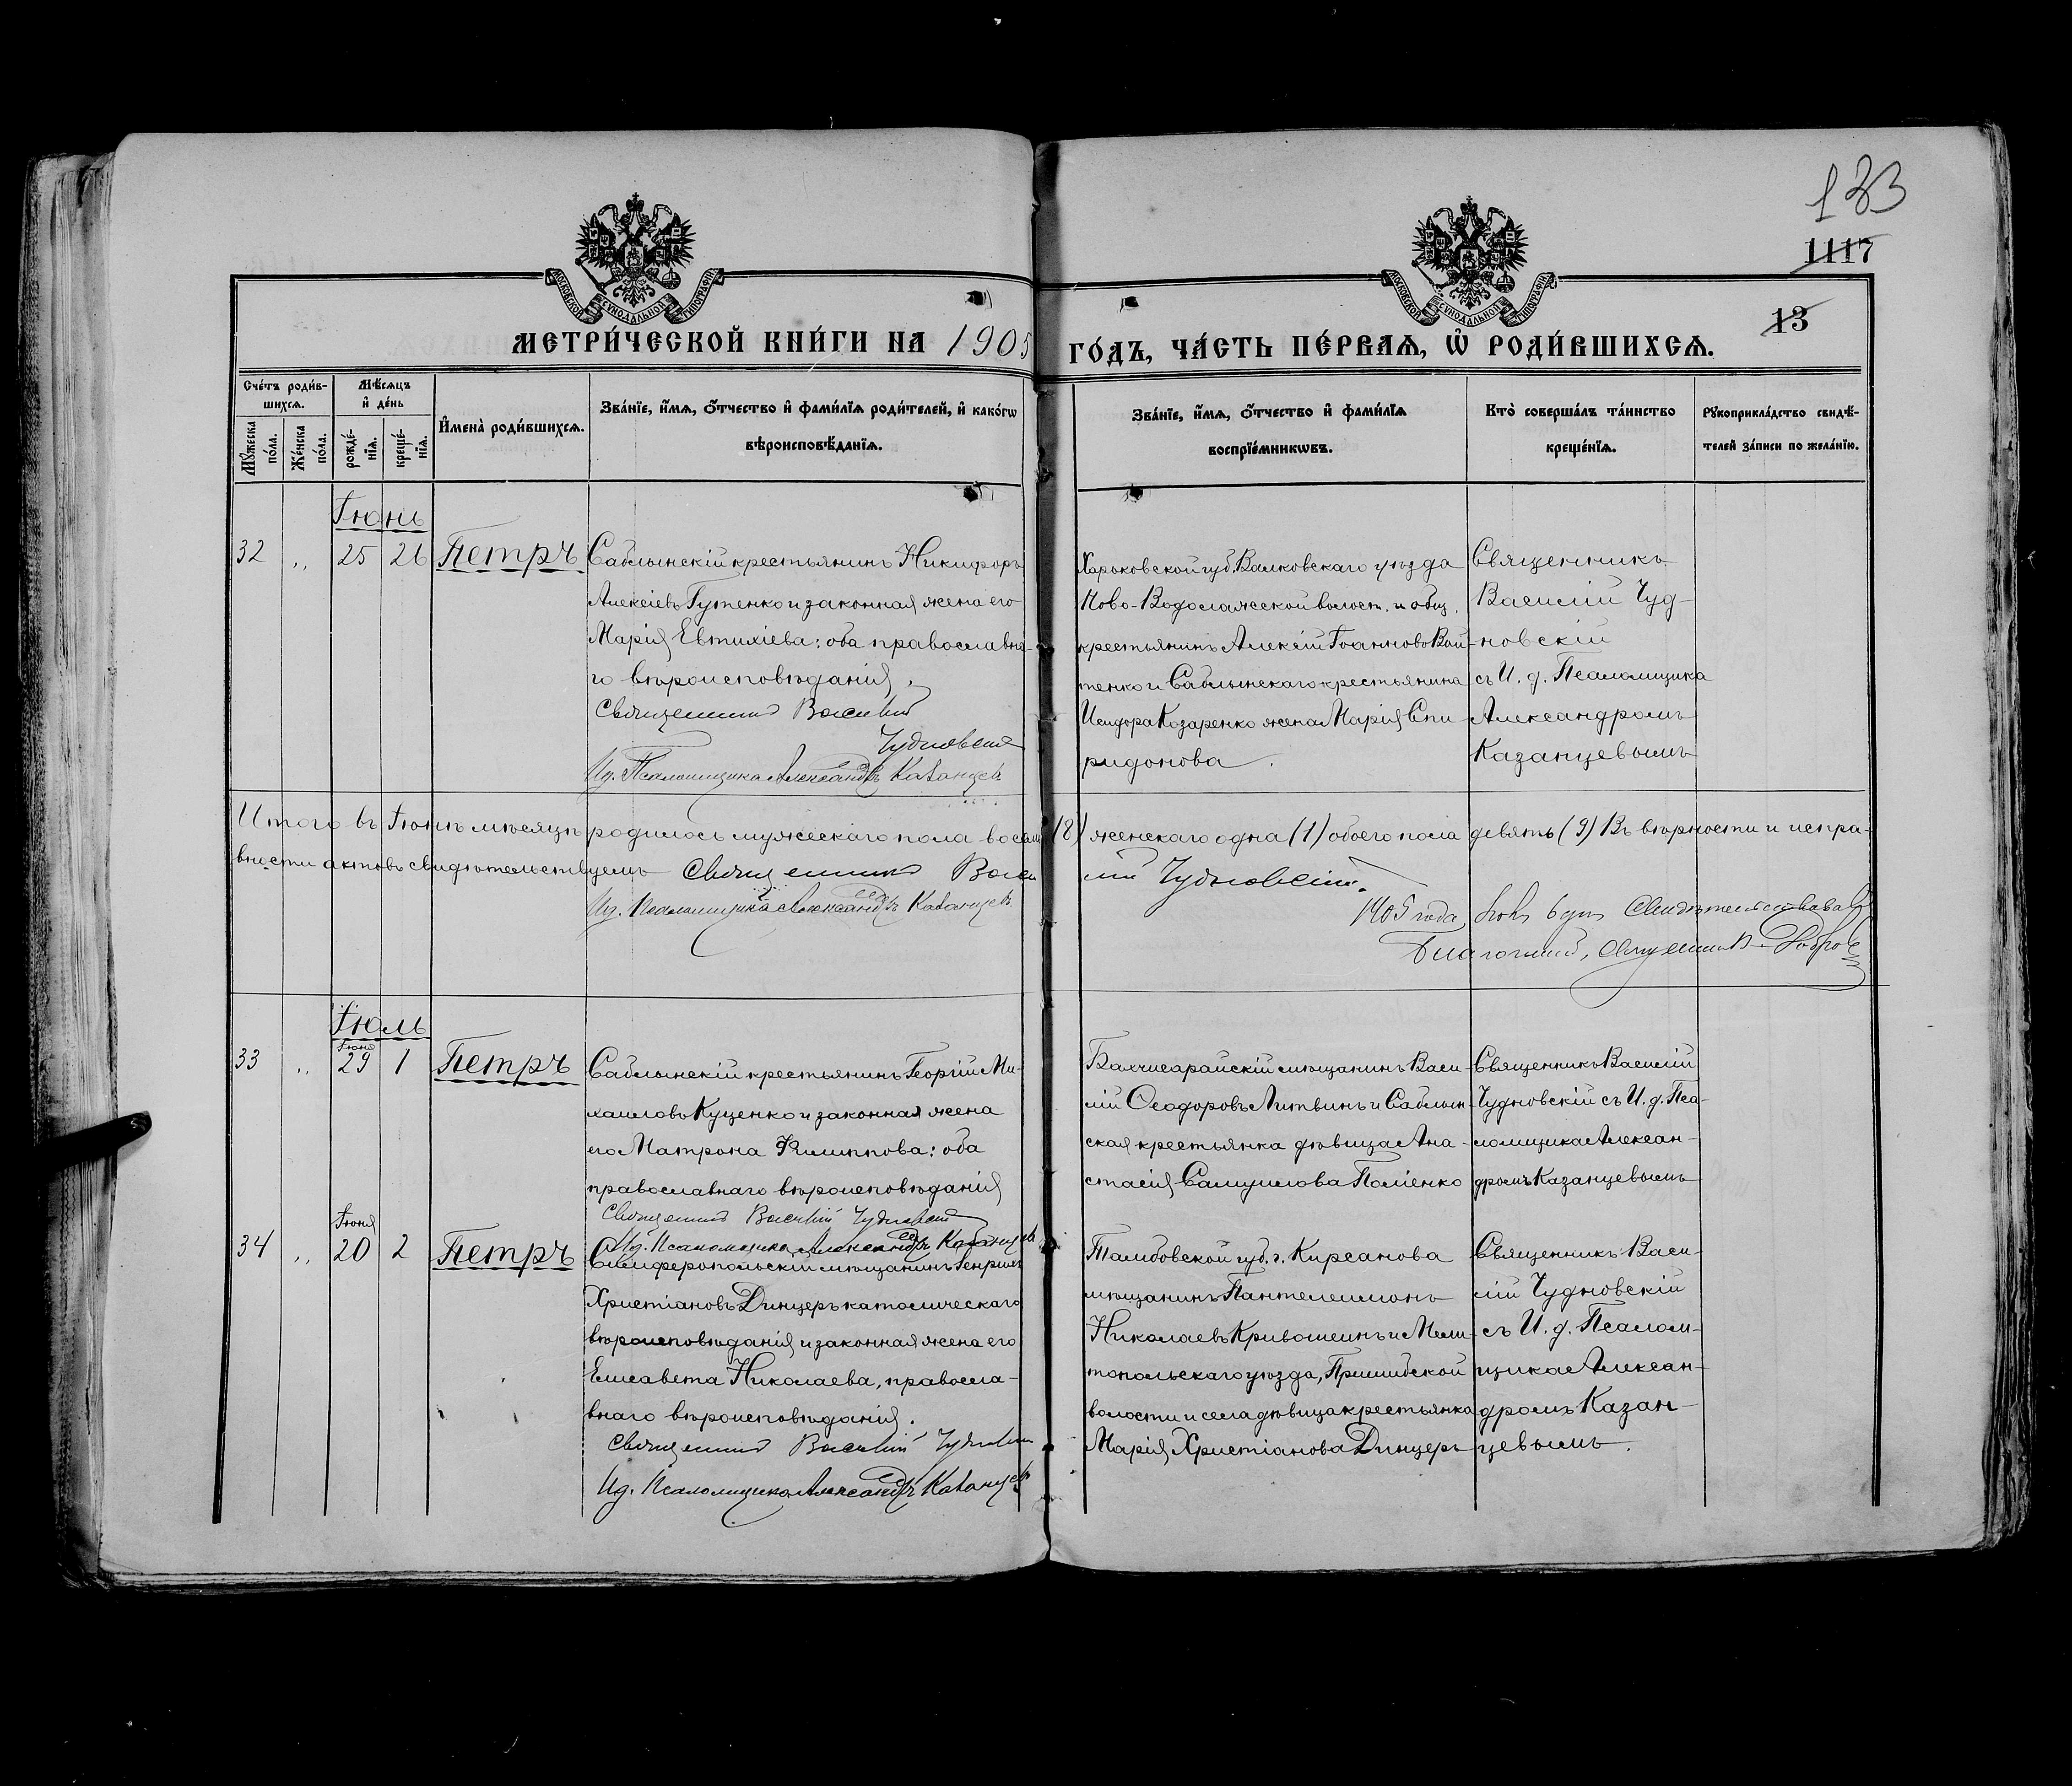 133
1117
13
МОСКОВСКОЙ СѴНОДАЛЬНОЙ ТИПОГРАФІИ
МОСКОВСКОЙ СѴНОДАЛЬНОЙ ТИПОГРАФІИ
МЕТРИ́ЧЕСКОЙ КНИ́ГИ НА 1905 ГО́ДЪ, ЧА́СТЬ ПЕ́РВАѦ, Ѡ҆ РОДИ́ВШИХСѦ.
Сче́тъ роди́в-
шихсѧ.
Мѣ́сѧцъ
и҆ де́нь
Мꙋ́жеска
по́ла.
Же́нска
по́ла.
рожде́-
нїѧ.
креще́-
нїѧ.
И҆мена̀ роди́вшихсѧ.
Зва́нїе, и҆́мѧ, ѻ҆́тчество и҆ фами́лїѧ роди́телей, и҆ како́гѡ
вѣроисповѣ́данїѧ.
Зва́нїе, и҆́мѧ, ѻ҆́тчество и҆ фами́лїѧ
воспрїе́мникѡвъ.
Кто̀ соверша́лъ та́инство
креще́нїѧ.
Рꙋкоприкла́дство свидѣ́-
телей за́писи по жела́нїю.
Іюнь
32 „ 25 26 Петръ
Саблынскій крестьянинъ Никифоръ
Алексіевъ Гутенко и законная жена его
Марія Евтихіева: оба православна-
го вѣроисповѣданія.
Священникъ Василій
Чудновскій
И.д. Псаломщика Александръ Казанцевъ
Харьковской губ. Валковскаго уѣзда
Ново-Водолажской волост. и общ.
крестьянинъ Алексій Іоанновъ Вой-
тенко и Саблынскаго крестьянина
Исидора Козаренко жена Марія Спи-
ридонова.
Священникъ
Василій Чуд-
новскій
съ И. д. Псаломщика
Александромъ
Казанцевымъ
Итого въ Іюнѣ мѣсяцѣ родилось мужескаго пола восемь (8) женскаго одна (1) обоего пола девять (9) Въ вѣрности и испра-
вности актовъ свидѣтельствуемъ Священникъ Васи лій Чудновскій.
И.д. Псаломщика Александръ Казанцевъ
1905 года дня Свидѣтельствовалъ
Благочинный, Священникъ
Іюль
Іюня
33 „ 29 1 Петръ
Саблынскій крестьянинъ Георгій Ми-
хаиловъ Куценко и законная жена
его Матрона Филиппова: оба
православнаго вѣроисповѣданія
Священникъ Василій Чудновскій
И.д. Псаломщика Александръ Казанцевъ
Бахчисарайскій мѣщанинъ Васи-
лій Ѳеодоровъ Литвинъ и Саблын-
ская крестьянка дѣвица Ана-
стасія Самуилова Поліенко
Священникъ Василій
Чудновскій съ И. д. Пса-
ломщика Алексан-
дромъ Казанцевымъ
Іюня
34 „ 20 2 Петръ
Симферопольскій мѣщанинъ Генрихъ
Христіановъ Динцеръ католическаго
вѣроисповѣданія и законная жена его
Елисавета Николаева, правосла-
внаго вѣроисповѣданія.
Священникъ Василій Чудновскій
И.д. Псаломщика Александръ Казанцевъ
Тамбовской губ. г. Кирсанова
мѣщанинъ Пантелеимонъ
Николаевъ Кривошеинъ и Мели-
топольскаго уѣзда, Пришибской
волости и села дѣвица крестьянка
Марія Христіанова Динцеръ
Священникъ Васи-
лій Чудновскій
съ И. д. Псалом-
щика Алексан-
дромъ Казан-
цевымъ.